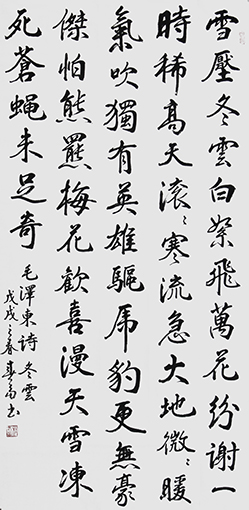 雪壓冬雲白絮飛萬花紛謝一
時稀高天滾〻寒流急大地微〻暖
氣吹獨有英雄驅虎豹更無豪
傑怕熊羆梅花歡喜漫天雪凍
死蒼蠅未足奇
毛澤東詩冬雲
戊戌之春书